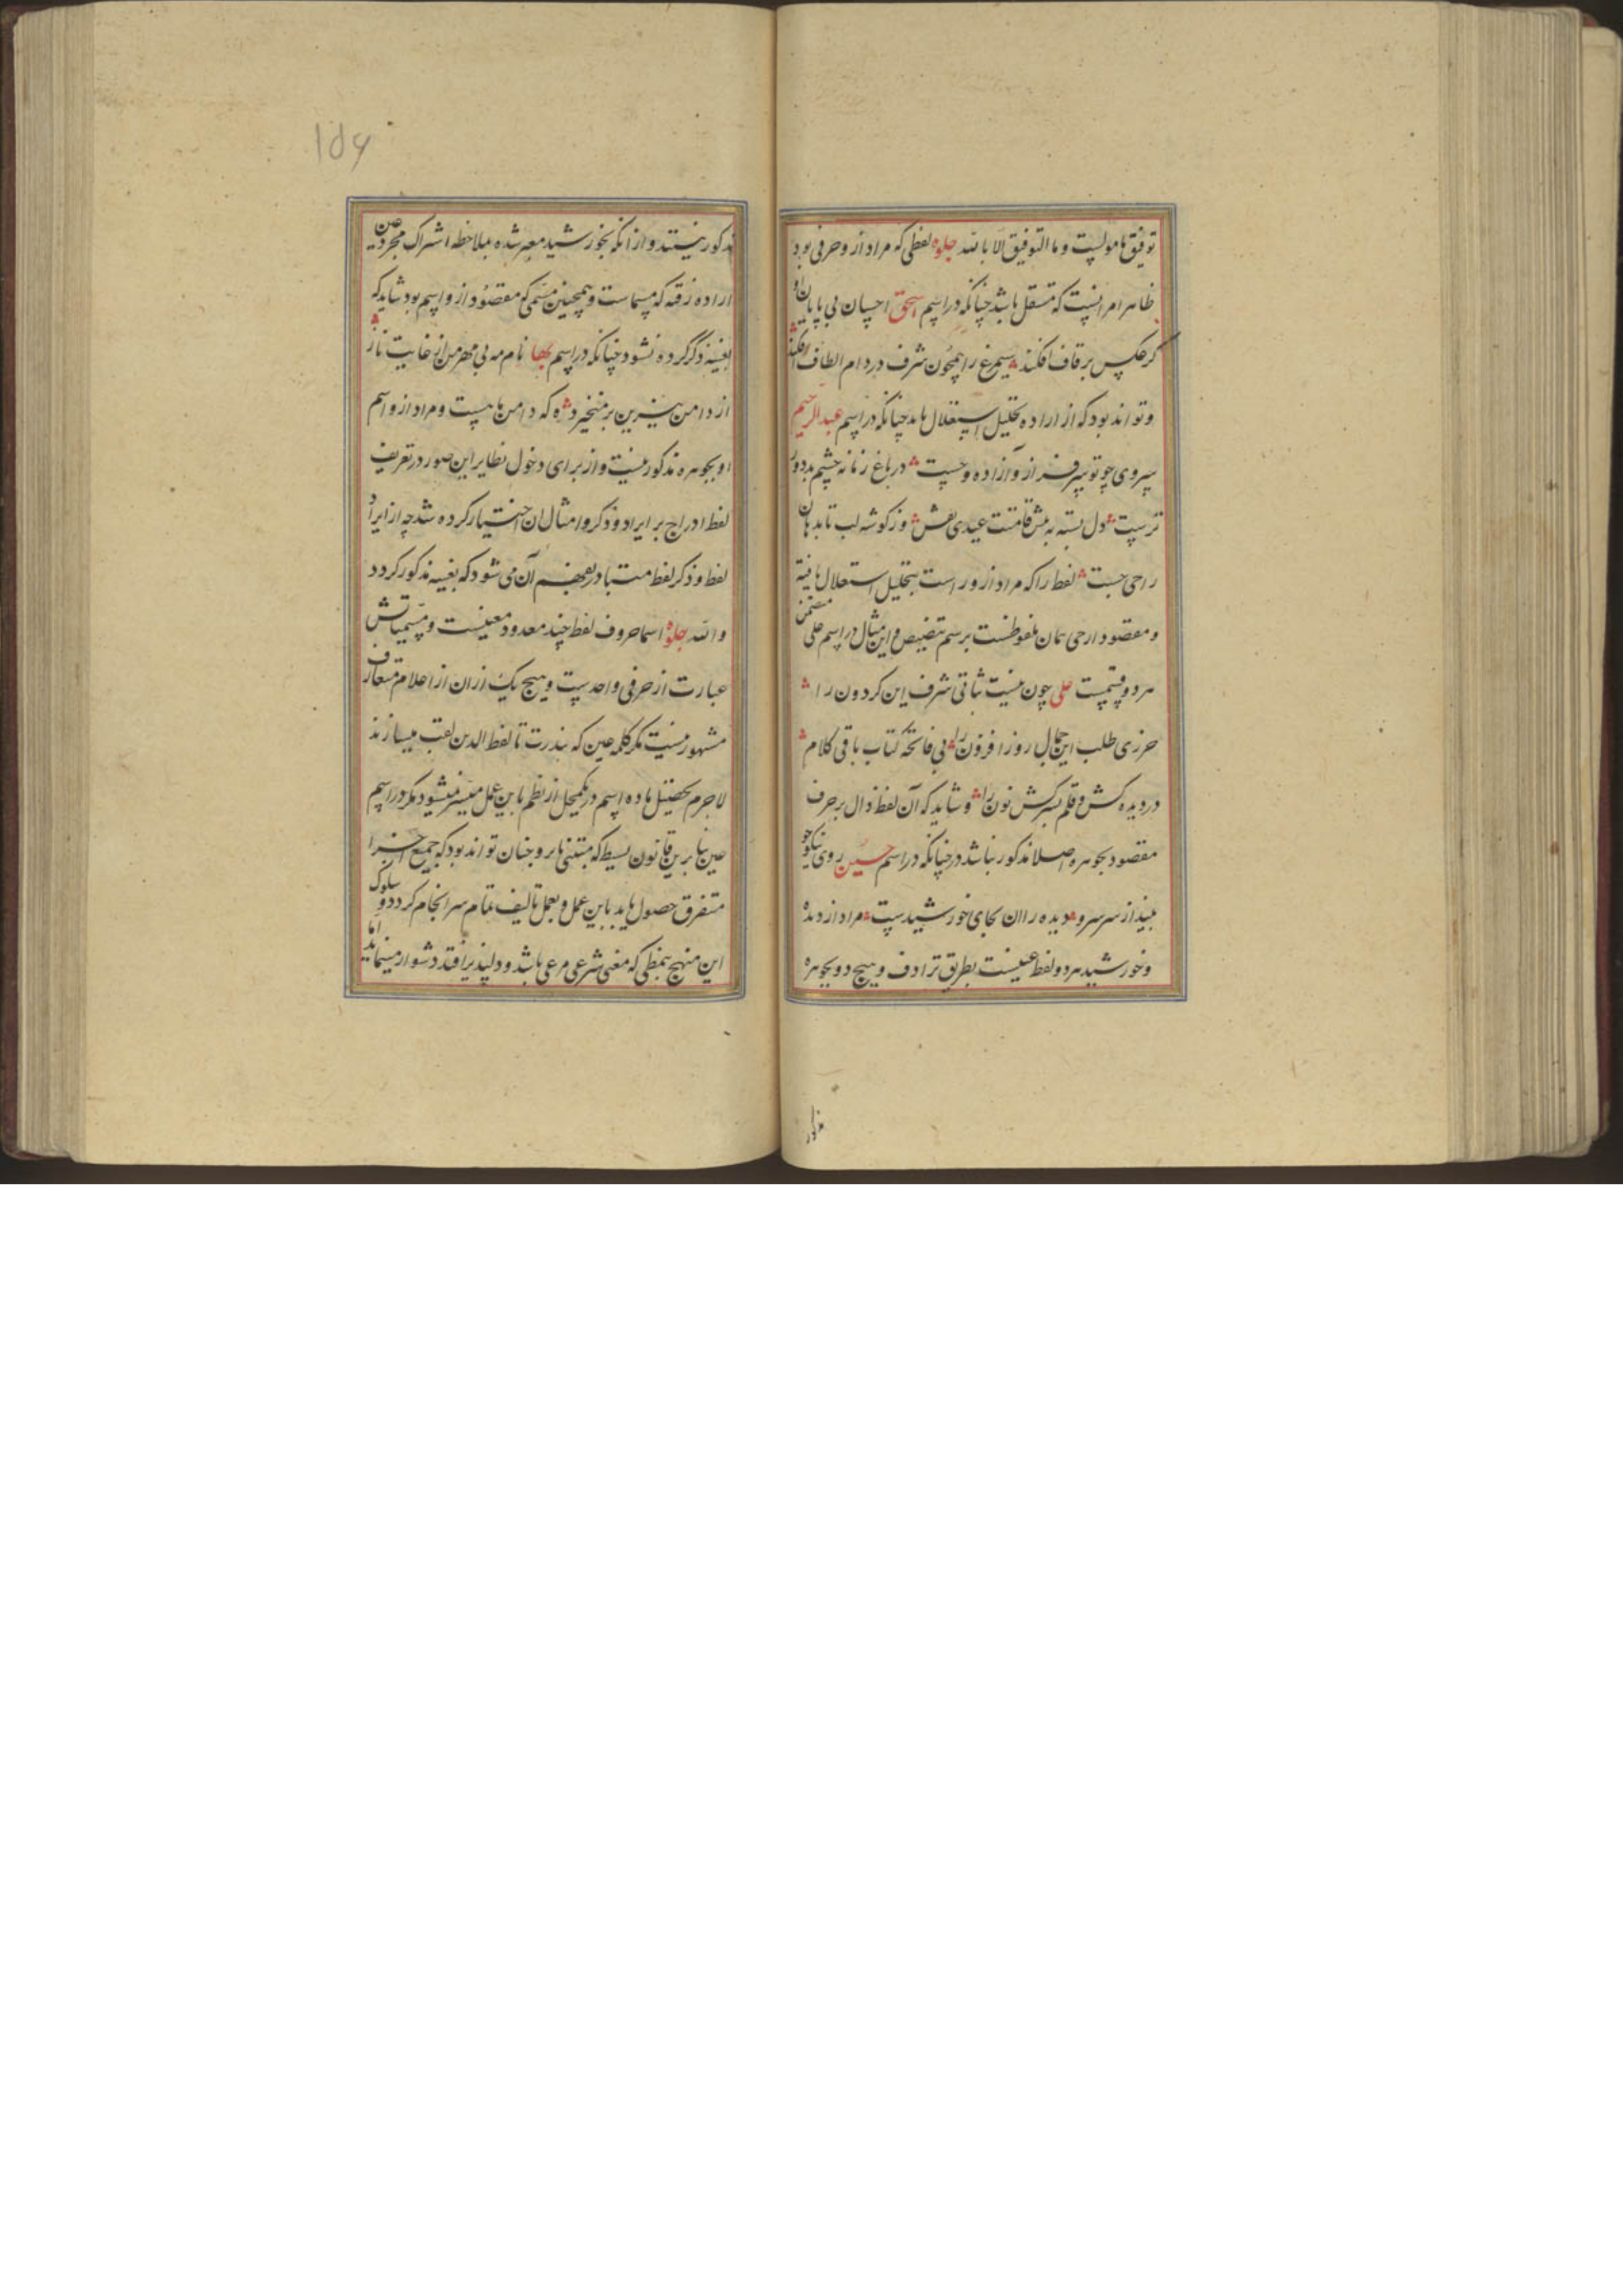 توفیق ما مولیست و ما التوفیق الا بالله جلوه لفظی که مراد ازو حرفی بود
ظاهر امر انست که مستقل باشد چنانکه در اسم اسحق احسان بی پایان او
کر عکس بر قاف افکند سیمرغ را همچون شرف در دام الطاف افکند
و تواند بود که از اراده تحلیل استقلال یابد چنانکه در اسم عبد الرحیم
سروی چو تو سرفراز و ازاده و چست در باغ زمانه چشم بد دور
ترست دل بسته به پیش قامتت عیدی نقش وز کوشه لب تا بدهان
راحی جست لفظ را که مراد ازو راست بتحلیل استقلال یافته
و مقصود از حی همان ملفوظست برسم تنصیص و این مثال در اسم علی متضمن
هر دو قسمست علی چون نیست ثباتی شرف این کردون را
حرزی طلب این جمال روز افزون را بی فاتحه کتاب باقی کلام
در دیده کش و قلم بسرکش نون را و شاید که آن لفظ دال بر حرف
مقصود بجوهره اصلا مذکور نباشد چنانکه در اسم حسین روی نیکو چو
بیند از سر سرو دیده را ان بجای خورشیدست مراد از دیده
و خورشید هر دو لفظ عینست بطریق ترادف و هیچ دو بجوهره
مذکور
156
مذکور نیستند و از انکه بخورشید معبر شده بملاحظه اشتراک مجرد عین
اراده رفته که مسماست و همچنین مسمی که مقصود ازو اسم بود شاید که
بعینه ذکر کرده نشود چنانکه در اسم بها نام مه بی مهر من از غایت ناز
از دامن شیرین بر نمیخیزد که دامن ماست و مراد ازو اسم
او بجوهره مذکور نیست و از برای دخول نظایر این صور در تعریف
لفظ ادراج بر ایراد و ذکر و امثال ان اختیار کرده شد چه از ایراد
لفظ و ذکر لفظ متبادر بفهم آن می شود که بعینه مذکور کردد
والله جلوه اسما حروف لفظ چند معدود معینست و مسمیاتش
عبارت از حرفی واحد ست و هیچ یک ازان از اعلام متعارف
مشهور نیست مکر کلمه عین که بندرت تا لفظ الدین لقب میسازند
لاجرم تحصیل ماده اسم در یکمحل از نظم باین عمل میسر نمیشود مکر در اسم
عین بنا برین قانون بسیط که مبتنی ما بر و چنان تواند بود که جمیع اجزا
متفرق حصول یابد باین عمل و بعمل تالیف تمام سر انجام کردد و سلوک
این منهج بنمطی که معنی شرعی مرعی باشد و دلپذیر افتد دشوار مینماید اما